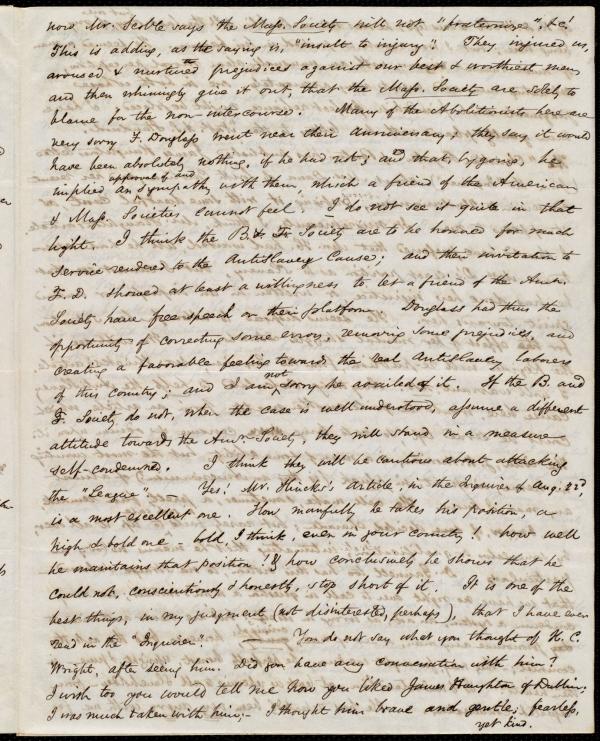 now Mr. Scoble says the Mass. Society will not "fraternize", &c!
This is adding, as the saying is, "insult to injury". They injured us,
aroused & nurtured the prejudices against our best & worthiest men,
and then whiningly give it out, that the Mass. Society are solely to
blame for the non-intercourse. Many of the Abolitionists here are
very sorry F. Douglass went near their Anniversary; they say it would
have been absolutely nothing, if he had not; and that, by going, he
implied an approval of and sympathy with them, which a friend of the American
& Mass. Societies cannot feel. I do not see it quite in that
light. I think the B. & F. Society are to be honored for much
service rendered to the Antislavery Cause; and their invitation to
F. D. showed at least a willingness to let a friend of the Amn.
Society have free speech on their platform. Douglass had thus the
opportunity of correcting some errors, removing some prejudices, and
creating a favorable feeling towards the real Antislavery laborers
of this country; and I am not sorry he availed of it. If the B. and
F. Society do not, when the case is well understood, assume a different
attitude towards the Amn. Society, they will stand in a measure
self-condemned. I think they will be cautious about attacking
the "League". — Yes! Mr. Hincks's article, in the Inquirer of Aug. 22d,
is a most excellent one. How manfully he takes his position, a
high & bold one – bold, I think, even in your country! how well
he maintains that position! & how conclusively he shows that he
could not, conscientiously & honestly, stop short of it. It is one of the
best things, in my judgment (not disinterested, perhaps), that I have ever
read in the "Inquirer". — You do not say what you thought of H. C.
Wright, after seeing him. Did you have any conversation with him?
I wish too you would tell me how you liked James Haughton of Dublin;
I was much taken with him;– I thought him brave and gentle, fearless,
yet kind.